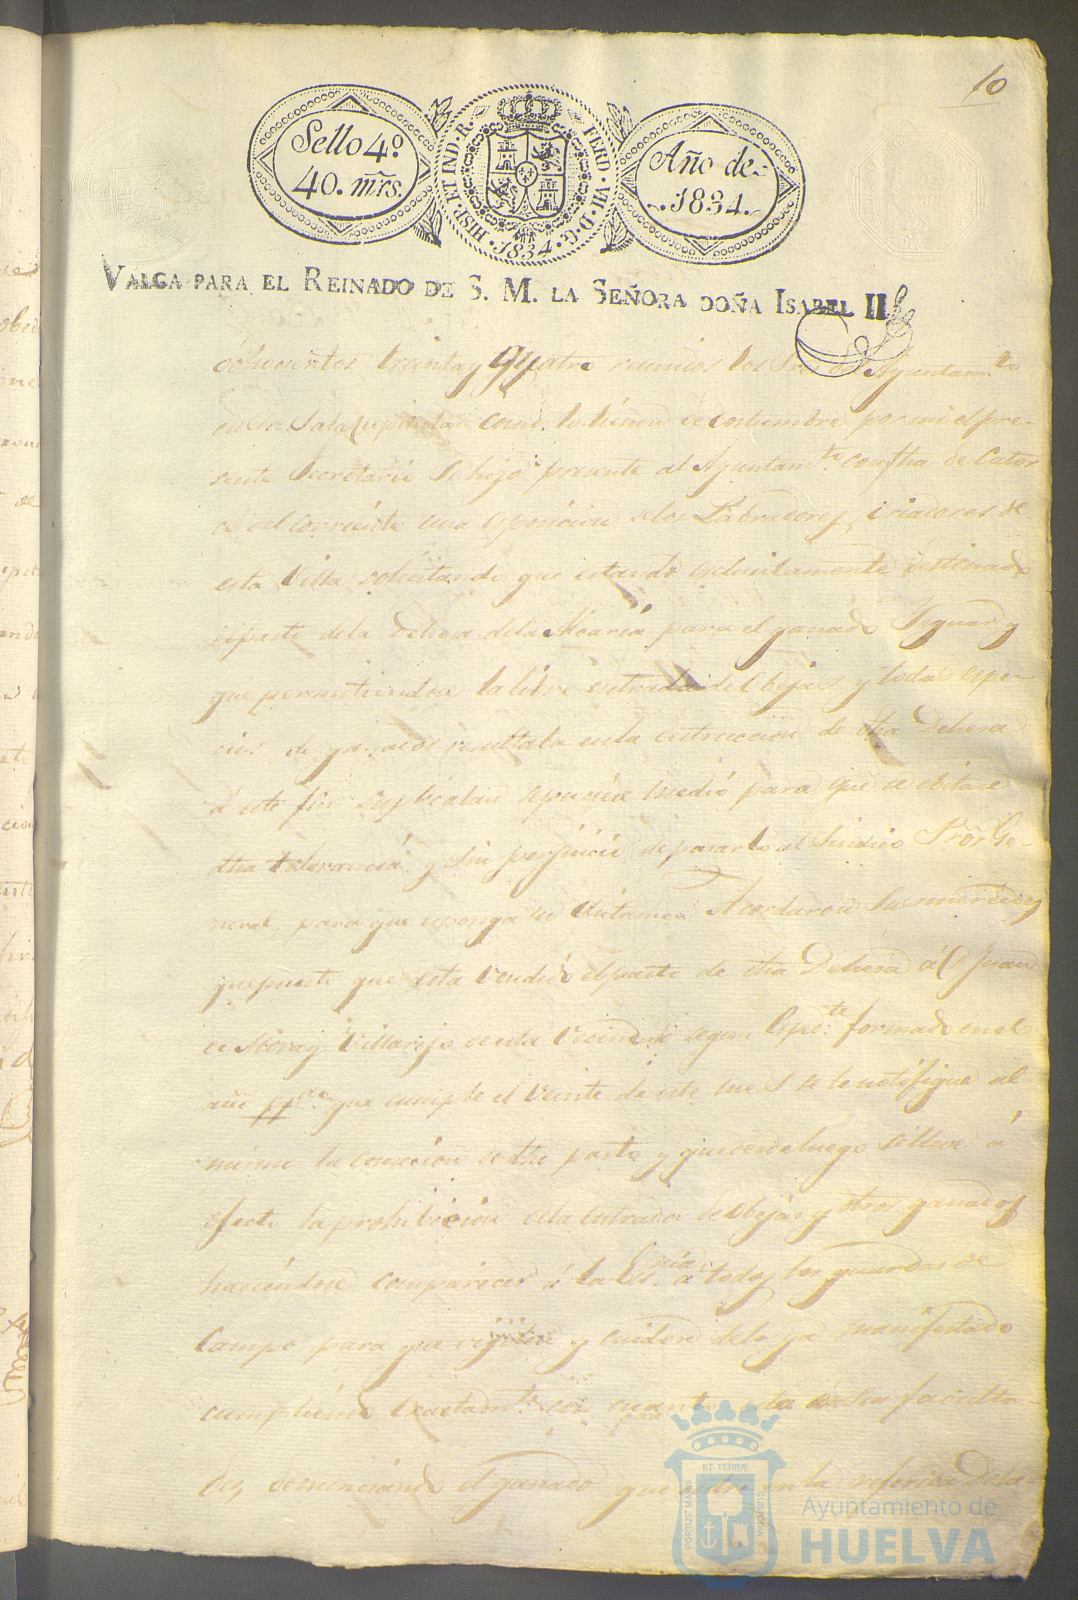 10
Sello 4º
40. mrs.
HISP. ET IND. R. FERD. VII. D. G. 1834.
Año de
1834.
VALGA PARA EL REINADO DE S. M. LA SEÑORA DOÑA ISABEL II
ochocientos treinta y Quatro reunidos los Sres del Ayuntamto
en la Sala Capitular como lo tienen de costumbre por mi el pre-
sente Secretario se hizo presente al Ayuntamto con fha de Cator
ce del corriente una esposicion de los Labradores, criadores de
esta Villa solicitando que estando esclusivamente destinado
el pasto de la Dehesa de la Alcaria para el ganado Yeguar y
que permitiendose la libre entrada de Obejas y todas espe-
cies de ganados resultaba en la destruccion de dha Dehesa
á este fin suplicaban se pusiese medio para que se ebitase
dha tolerancia y sin perjuicio de pasarlo al Sindico Pror Ge-
neral, para que esponga su dictamen Acordaron Sus mercedes
que puesto que esta vendido el pasto de dha Dehesa á D Juan
de Mora y Villarejo de esta Vecindad segun Espdte formado en el
año que cumple el veinte de este mes se le notifique al
mismo la conclusion de dho pasto y que desde luego se lleve á
efecto la prohibicion de la entrada de Obejas y otros ganados
haciendose comparecer á la Esnia á todos los guardas de
Campo para que vijilen y cuiden de lo ya manifestado
cumpliendo exactamte en cuanto esta de sus faculta-
des, denunciando el ganado que entre en la referida Dehe-
ET TERRÆ
PORTUS MARIS
CUSTODIA
Ayuntamiento de
HUELVA